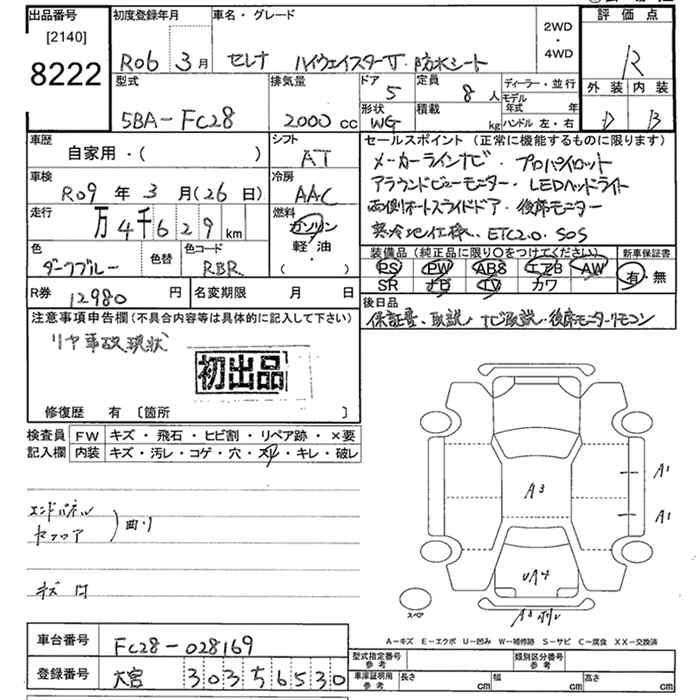 出品番号
[2140]
8222
初度登録年月
R06 3月
車名・グレード
セレナ ハイウェイスターV 防水シート
2WD
・
4WD
評価点
R
型式
5BA-FC28
排気量
2000 cc
ドア
5
定員
8人
形状
WG
積載
kg
ディーラー・並行
モデル年式 年
ハンドル 左・右
外装 内装
D B
車歴
自家用・( )
シフト
AT
車検
R09年 3月(26日)
冷房
AAC
走行
万4千629km
燃料
ガソリン
軽・油
( )
色
ダークブルー
色替
色コード
RBR
セールスポイント(正常に機能するものに限ります)
メーカーラインナビ・プロパイロット
アラウンドビューモニター・LEDヘッドライト
両側オートスライドドア・後席モニター
寒冷地仕様、ETC2.0、SOS
装備品(純正品に限り○をつけてください)
新車保証書
PS PW ABS エアB AW
SR ナビ TV カワ
有・無
R券 12980円
名変期限 月 日
後日品
保証書、取説、ナビ取説・後席モニターリモコン
注意事項申告欄(不具合内容等は具体的に記入して下さい)
リヤ事故現状
初出品
修復歴 有 〔箇所 〕
検査員記入欄
FW キズ・飛石・ヒビ割・リペア跡・×要
内装 キズ・汚レ・コゲ・穴・スレ・キレ・破レ
エンドパネル
曲り
キズ 凹
A3
A1
A1
UA4
スペア
A-キズ E-エクボ U-凹み W-補修跡 S-サビ C-腐食 XX-交換済
車台番号
FC28-028169
登録番号
大宮 303 ち 6530
型式指定番号 参考
類別区分番号 参考
車庫証明用 参考
長さ cm
幅 cm
高さ cm